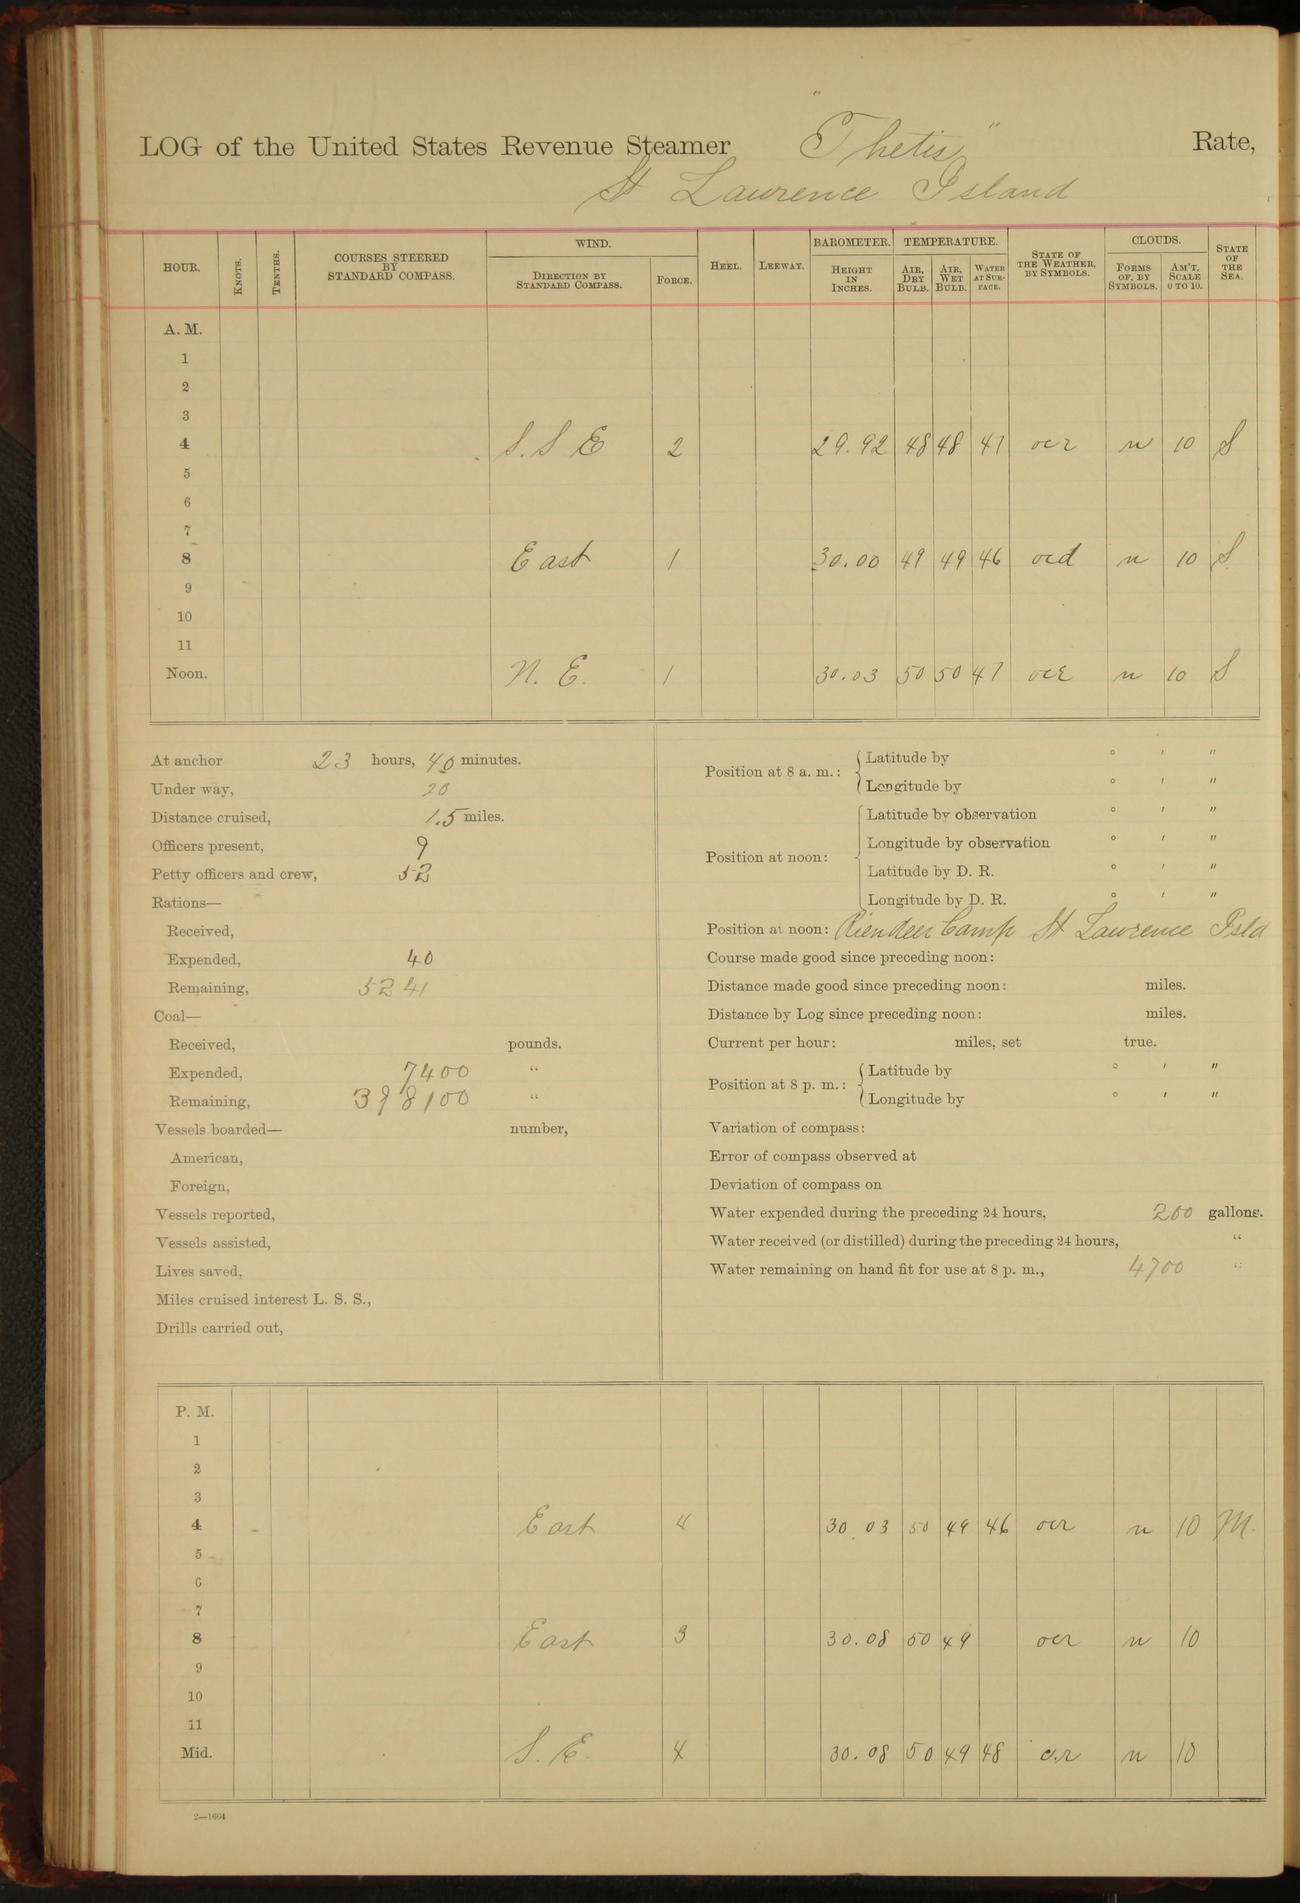 LOG of the United States Revenue Steamer "Thetis" Rate,
St Lawrence Island
HOUR. KNOTS. TENTHS. COURSES STEERED BY STANDARD COMPASS. WIND. DIRECTION BY STANDARD COMPASS. FORCE. HEEL. LEEWAY. BAROMETER. HEIGHT IN INCHES. TEMPERATURE. AIR, DRY BULB. AIR, WET BULB. WATER AT SURFACE. STATE OF THE WEATHER, BY SYMBOLS. CLOUDS. FORMS OF, BY SYMBOLS. AM'T, SCALE 0 TO 10. STATE OF THE SEA.
A. M.
1
2
3
4 S. S E 2 29.92 48 48 47 ocr n 10 S
5
6
7
8 East 1 30.00 49 49 46 ocd n 10 S
9
10
11
Noon. N. E. 1 30.03 50 50 47 n 10 S
At anchor 23 hours, 40 minutes.
Under way, 20
Distance cruised, 1.5 miles.
Officers present, 9
Petty officers and crew, 52
Rations—
Received,
Expended, 40
Remaining, 5241
Coal—
Received, pounds.
Expended, 7400 "
Remaining, 398100 "
Vessels boarded— number,
American,
Foreign,
Vessels reported,
Vessels assisted,
Lives saved,
Miles cruised interest L. S. S.,
Drills carried out,
Position at 8 a. m.: Latitude by ° ' "
Longitude by ° ' "
Position at noon: Latitude by observation ° ' "
Longitude by observation ° ' "
Latitude by D. R. ° ' "
Longitude by D. R. ° ' "
Position at noon: Riendeer Camp St Lawrence Isld
Course made good since preceding noon:
Distance made good since preceding noon: miles.
Distance by Log since preceding noon: miles.
Current per hour: miles, set true.
Position at 8 p. m.: Latitude by ° ' "
Longitude by ° ' "
Variation of compass:
Error of compass observed at
Deviation of compass on
Water expended during the preceding 24 hours, 200 gallons.
Water received (or distilled) during the preceding 24 hours, "
Water remaining on hand fit for use at 8 p. m., 4700 "
P. M.
1
2
3
4 East 4 30.03 50 49 46 ocr n 10 M.
5
6
7
8 East 3 30.08 50 49 ocr n 10
9
10
11
Mid. S. E. 4 30.08 50 49 48 n 10
2—1664